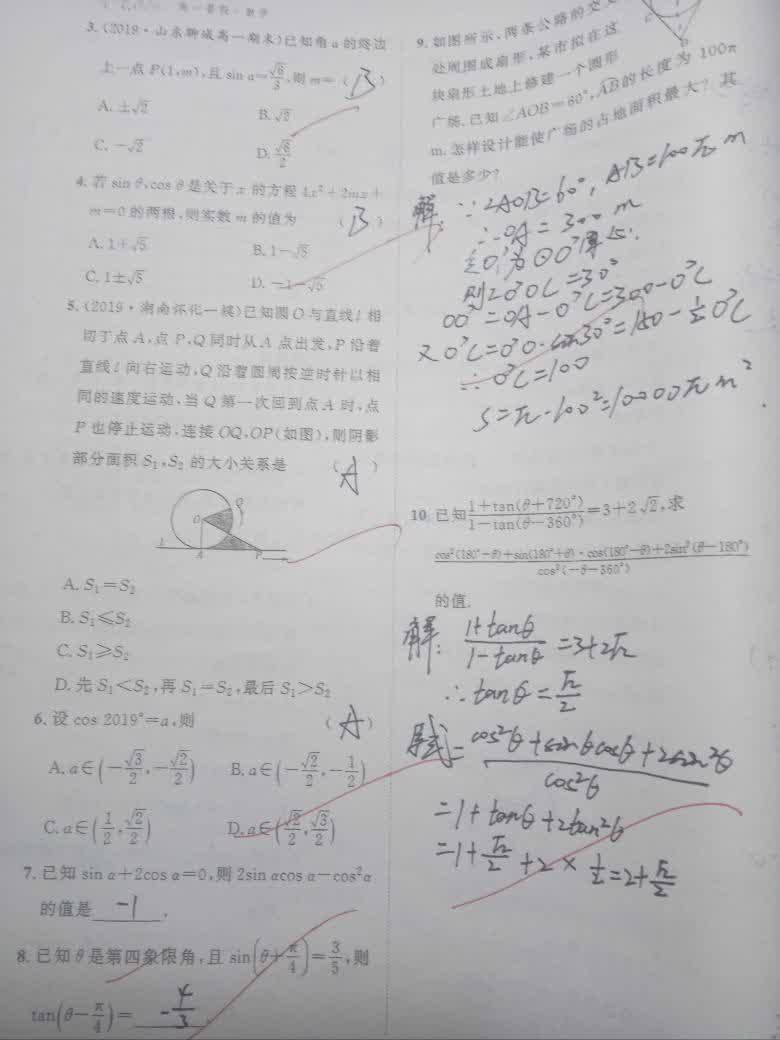 高一暑假·数学
3.(2019·山东聊城高一期末)已知角α的终边
上一点P(1,m),且sin α=√6/3,则m=(B)
A.±√2 B.√2
C.-√2 D.√6/2
4.若sin θ,cos θ是关于x的方程4x²+2mx+
m=0的两根,则实数m的值为 (B)
A.1+√5 B.1-√5
C.1±√5 D.-1-√5
5.(2019·湖南怀化一模)已知圆O与直线l相
切于点A,点P,Q同时从A点出发,P沿着
直线l向右运动,Q沿着圆周按逆时针以相
同的速度运动,当Q第一次回到点A时,点
P也停止运动,连接OQ,OP(如图),则阴影
部分面积S₁,S₂的大小关系是 (A)
O Q
l A P
A.S₁=S₂
B.S₁≤S₂
C.S₁≥S₂
D.先S₁<S₂,再S₁=S₂,最后S₁>S₂
6.设cos 2019°=a,则 (A)
A.a∈(-√3/2,-√2/2) B.a∈(-√2/2,-1/2)
C.a∈(1/2,√2/2) D.a∈(√2/2,√3/2)
7.已知sin α+2cos α=0,则2sin αcos α-cos²α
的值是 -1 .
8.已知θ是第四象限角,且sin(θ+π/4)=3/5,则
tan(θ-π/4)= -4/3 .
9.如图所示,两条公路的交叉
处周围成扇形,某市拟在这
块扇形土地上修建一个圆形
广场.已知∠AOB=60°,AB的长度为100π
m.怎样设计能使广场的占地面积最大?其
值是多少?
解:∵∠AOB=60°,AB=100π m
∴OA=300 m
O'为⊙O'
则∠O'OC=30°
OO'=OA-O'C=300-O'C
又O'C=O'O·sin30°=150-1/2O'C
∴O'C=100
S=π·100²=10000π m².
10.已知(1+tan(θ+720°))/(1-tan(θ-360°))=3+2√2,求
(cos²(180°-θ)+sin(180°+θ)·cos(180°-θ)+2sin²(θ-180°))/cos²(-θ-360°)
的值.
解:(1+tanθ)/(1-tanθ)=3+2√2
∴tanθ=√2/2
原式=(cos²θ+sinθcosθ+2sin²θ)/cos²θ
=1+tanθ+2tan²θ
=1+√2/2+2×1/2=2+√2/2